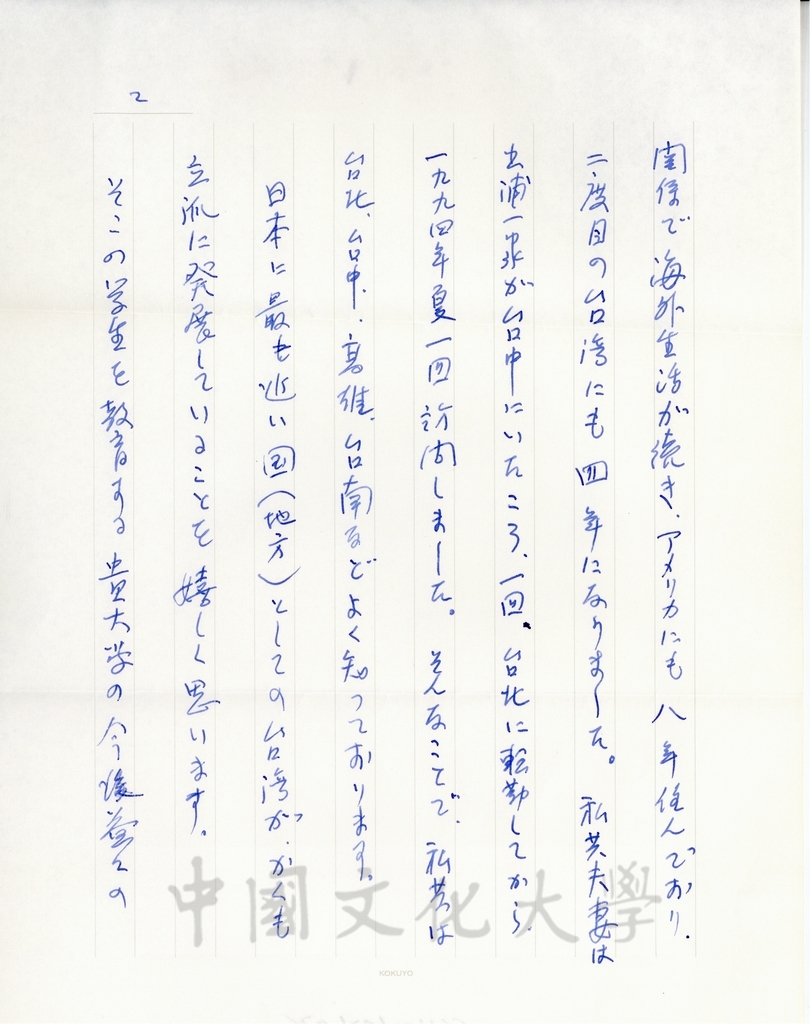 関係で海外生活が続き、アメリカにも八年住んでおり、
二度目の台湾にも四年になりました。私共夫妻は
土浦一家が台中にいたころ、一回、台北に転勤してから、
一九九四年夏一回訪問しました。そんなことで、私共は
台北、台中、高雄、台南などよく知っております。
日本に最も近い国(地方)としての台湾が、かくも
立派に発展していることを嬉しく思います。
そこの学生を教育する貴大学の今後益々の
2
中國文化大學
KOKUYO